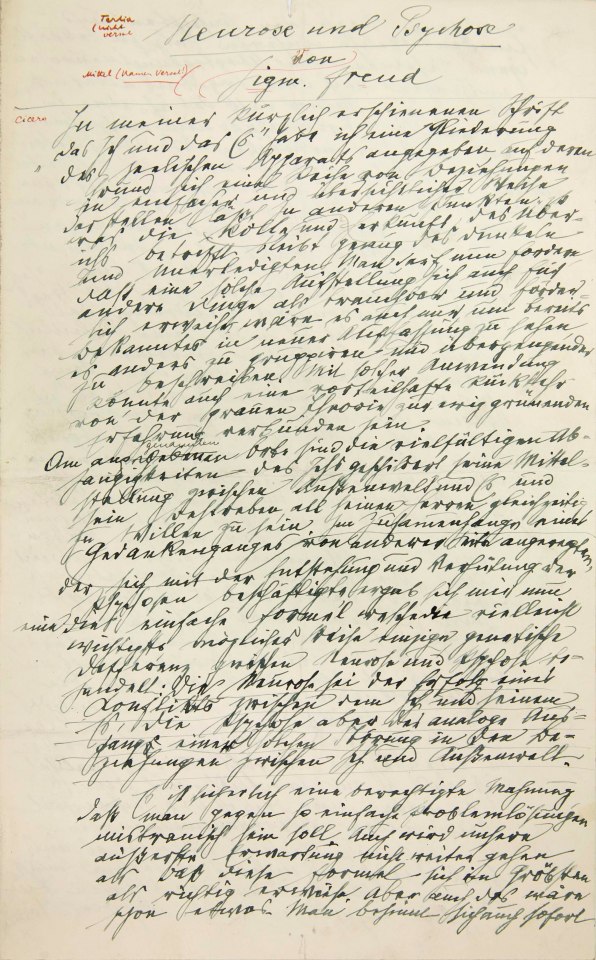 Tertia
(nicht
versal
Neurose und Psychose
von
Mittel (Namen Versal)
Sigm. Freud
Cicero
In meiner kürzlich erschienenen Schrift
„Das Ich und das Es“ habe ich eine Gliederung
des seelischen Apparats angegeben auf deren
Grund sich eine Reihe von Beziehungen
in einfacher und übersichtlicher Weise
darstellen läßt. In anderen Punkten, z B
was die Rolle und Herkunft des Über-
ichs betrifft bleibt genug des dunkeln
und Unerledigten. Man darf nun fordern
daß eine solche Aufstellung sich auch für
andere Dinge als brauchbar und förder-
lich erweise, wäre es auch nur um bereits
bekanntes in neuer Auffassung zu sehen
es anders zu gruppiren und überzeugender
zu beschreiben. Mit solcher Anwendung
könnte auch eine vorteilhafte Rückkehr
von der grauen Theorie zur ewig grünenden
Erfahrung verbunden sein.
Am genannten Orte sind die vielfältigen Ab-
hängigkeiten des Ichs geschildert, seine Mittel-
stellung zwischen Außenwelt und Es und
sein Bestreben all seinen Herren gleichzeitig
zu Willen zu sein. Im Zusammenhange eines
Gedankenganges von anderer Seite angeregten,
der sich mit der Entstehung und Verhütung der
Psychosen beschäftigte ergab sich mir nun
eine einfache Formel welche die vielleicht
wichtigste genetische
Differenz zwischen Neurose und Psychose be-
handelt: Die Neurose sei der Erfolg eines
Konflikts zwischen dem Ich und seinem
Es, die Psychose aber der analoge Aus-
gang einer solchen Störung in den Be-
ziehungen zwischen Ich und Außenwelt.
Es ist sicherlich eine berechtigte Mahnung
daß man gegen so einfache Problemlösungen
mistrauisch sein soll. Auch wird unsere
äußerste Erwartung nicht weiter gehen
als daß diese Formel sich im Gröbsten
als richtig erweise. Aber auch das wäre
schon etwas. Man besinnt sich auch sofort